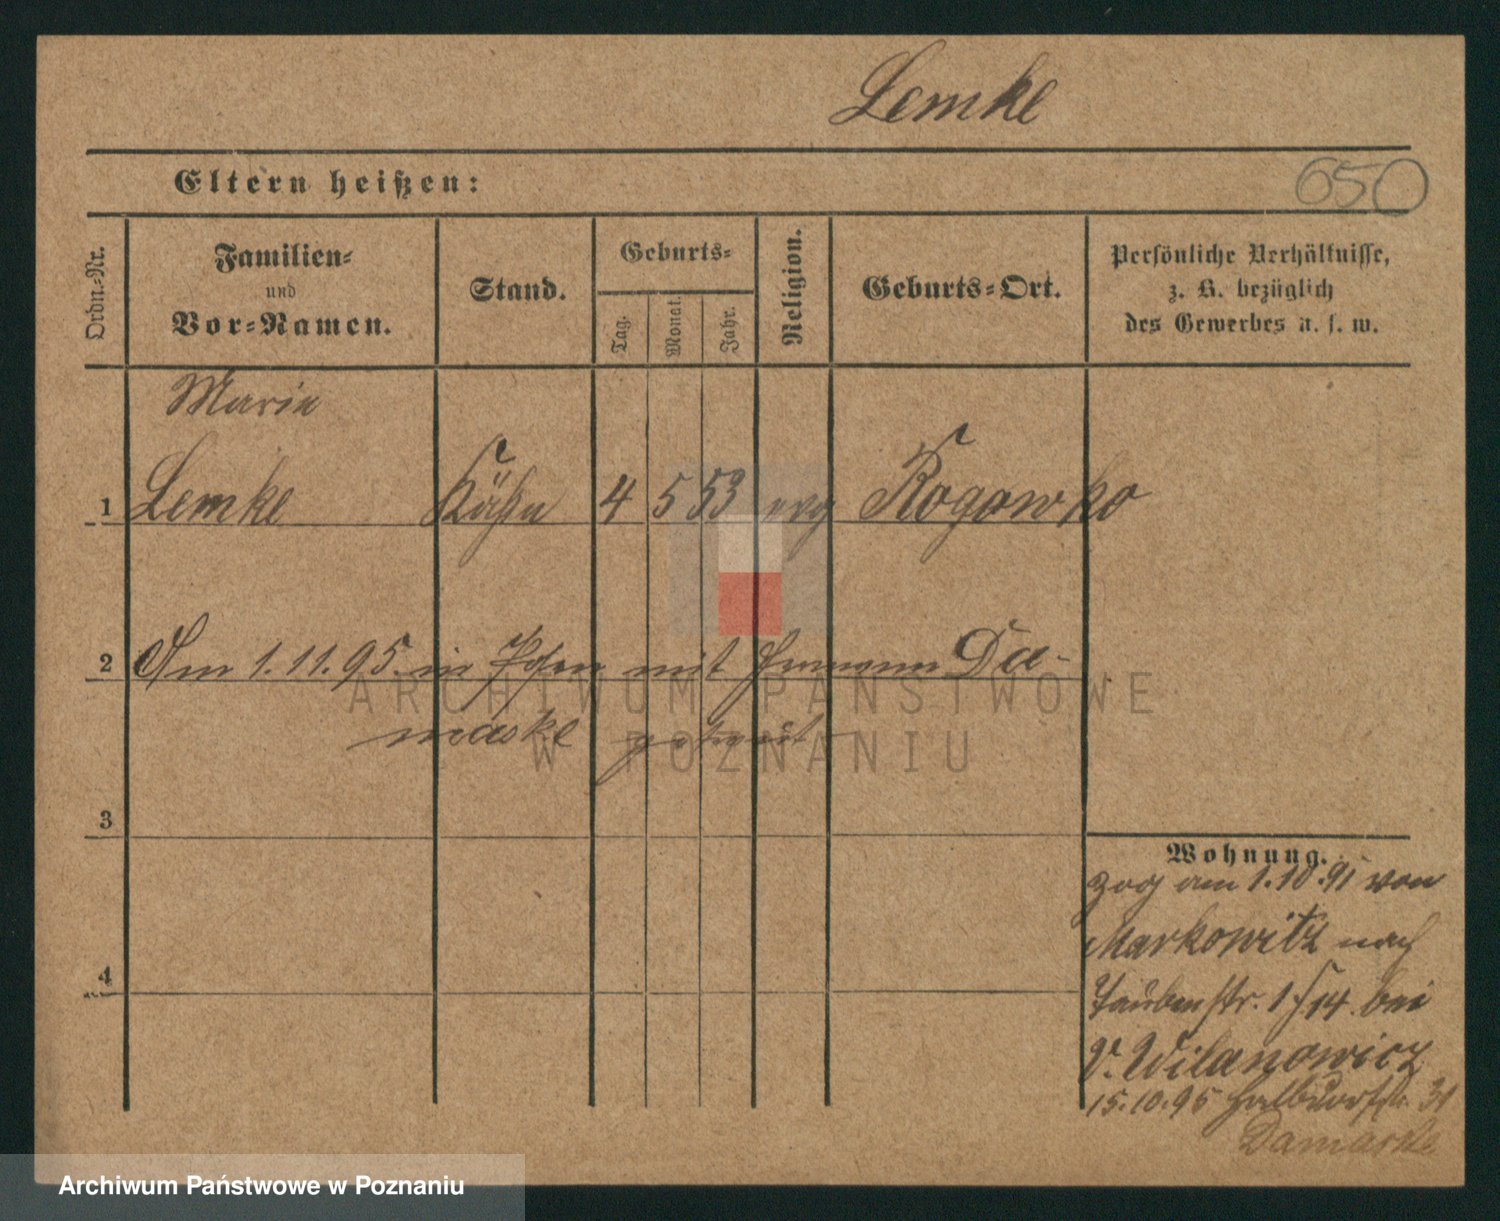 Lemke
Eltern heißen:
650
Ordn.-Nr.
Familien-
und
Vor-Namen.
Stand.
Geburts-
Tag.
Monat.
Jahr.
Religion.
Geburts-Ort.
Persönliche Verhältnisse,
z. B. bezüglich
des Gewerbes u. s. w.
Marie
1 Lemke Köchin 4 5 53 evg Rogowko
2 Am 1.11.95. in Posen mit Hermann Da-
maske getraut
3
4
Wohnung.
zog am 1.10.91 von
Markowitz nach
Taubenstr. 1 14 bei
V. Wilanowicz
15.10.95 Halbdorfstr. 31
Damaske
ARCHIWUM PAŃSTWOWE
W POZNANIU
Archiwum Państwowe w Poznaniu